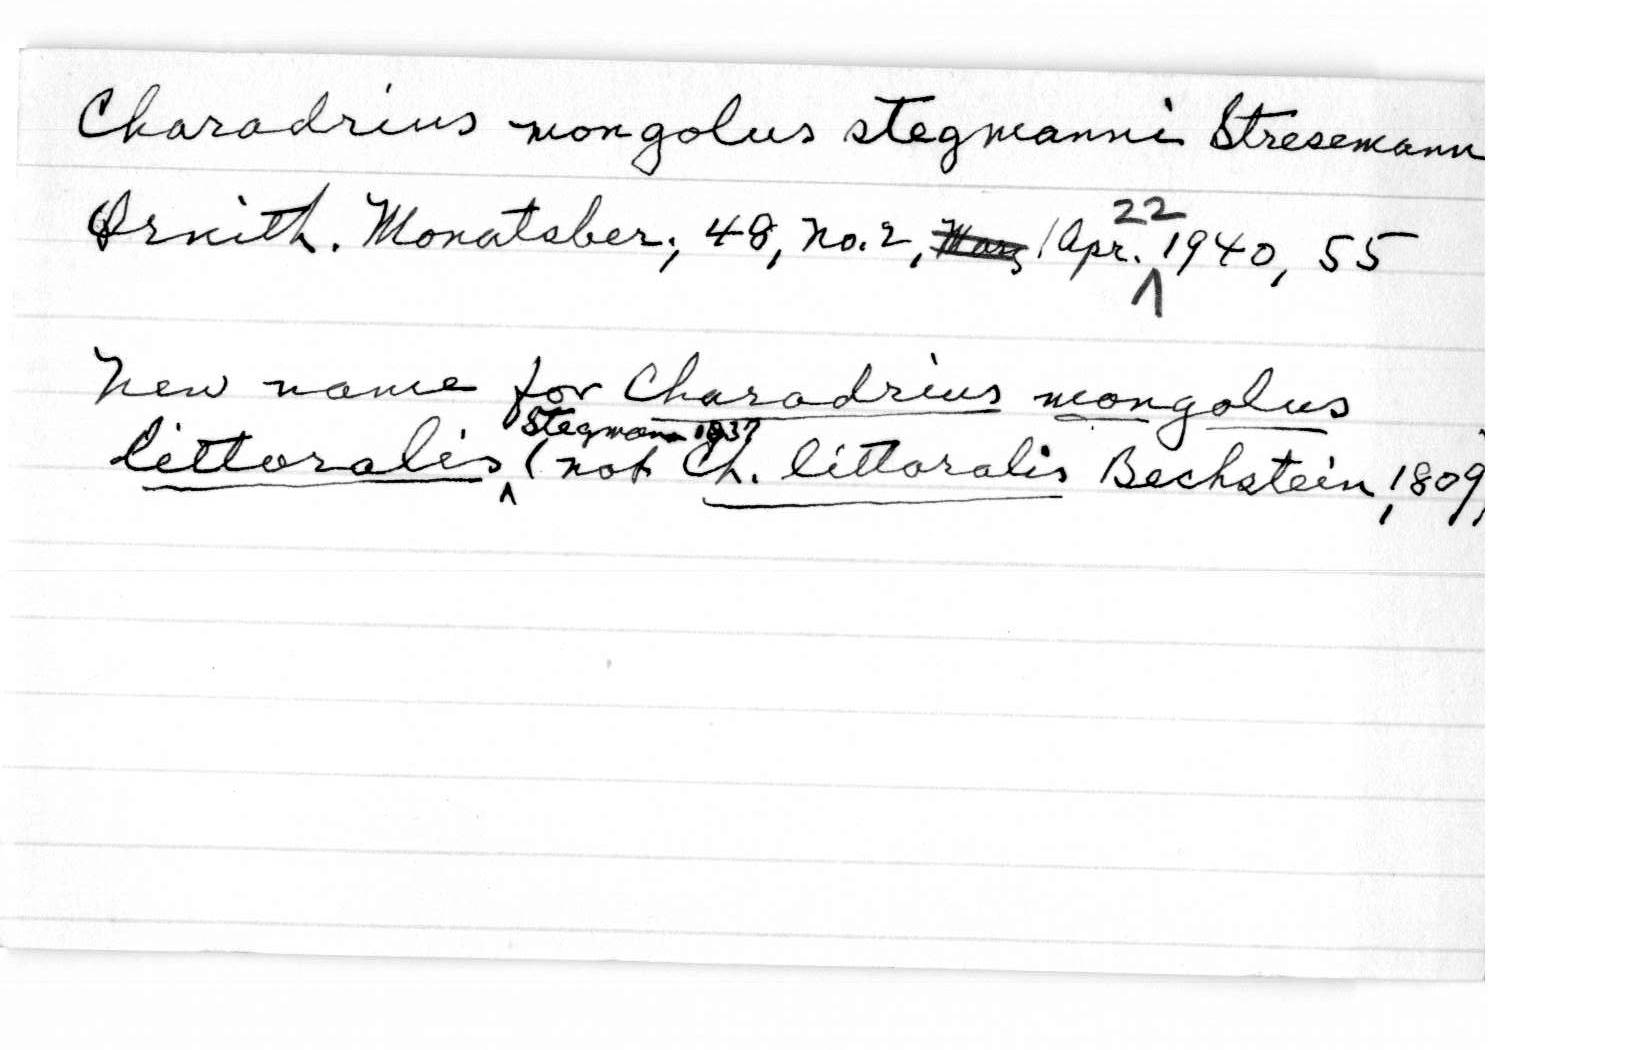 Charadrius mongolus stegmanni Stresemann
Ornith. Monatsber., 48, no. 2, Marz / Apr. 22 1940, 55
New name for Charadrius mongolus
littoralis Stegmann 1937 (not Ch. littoralis Bechstein, 1809)